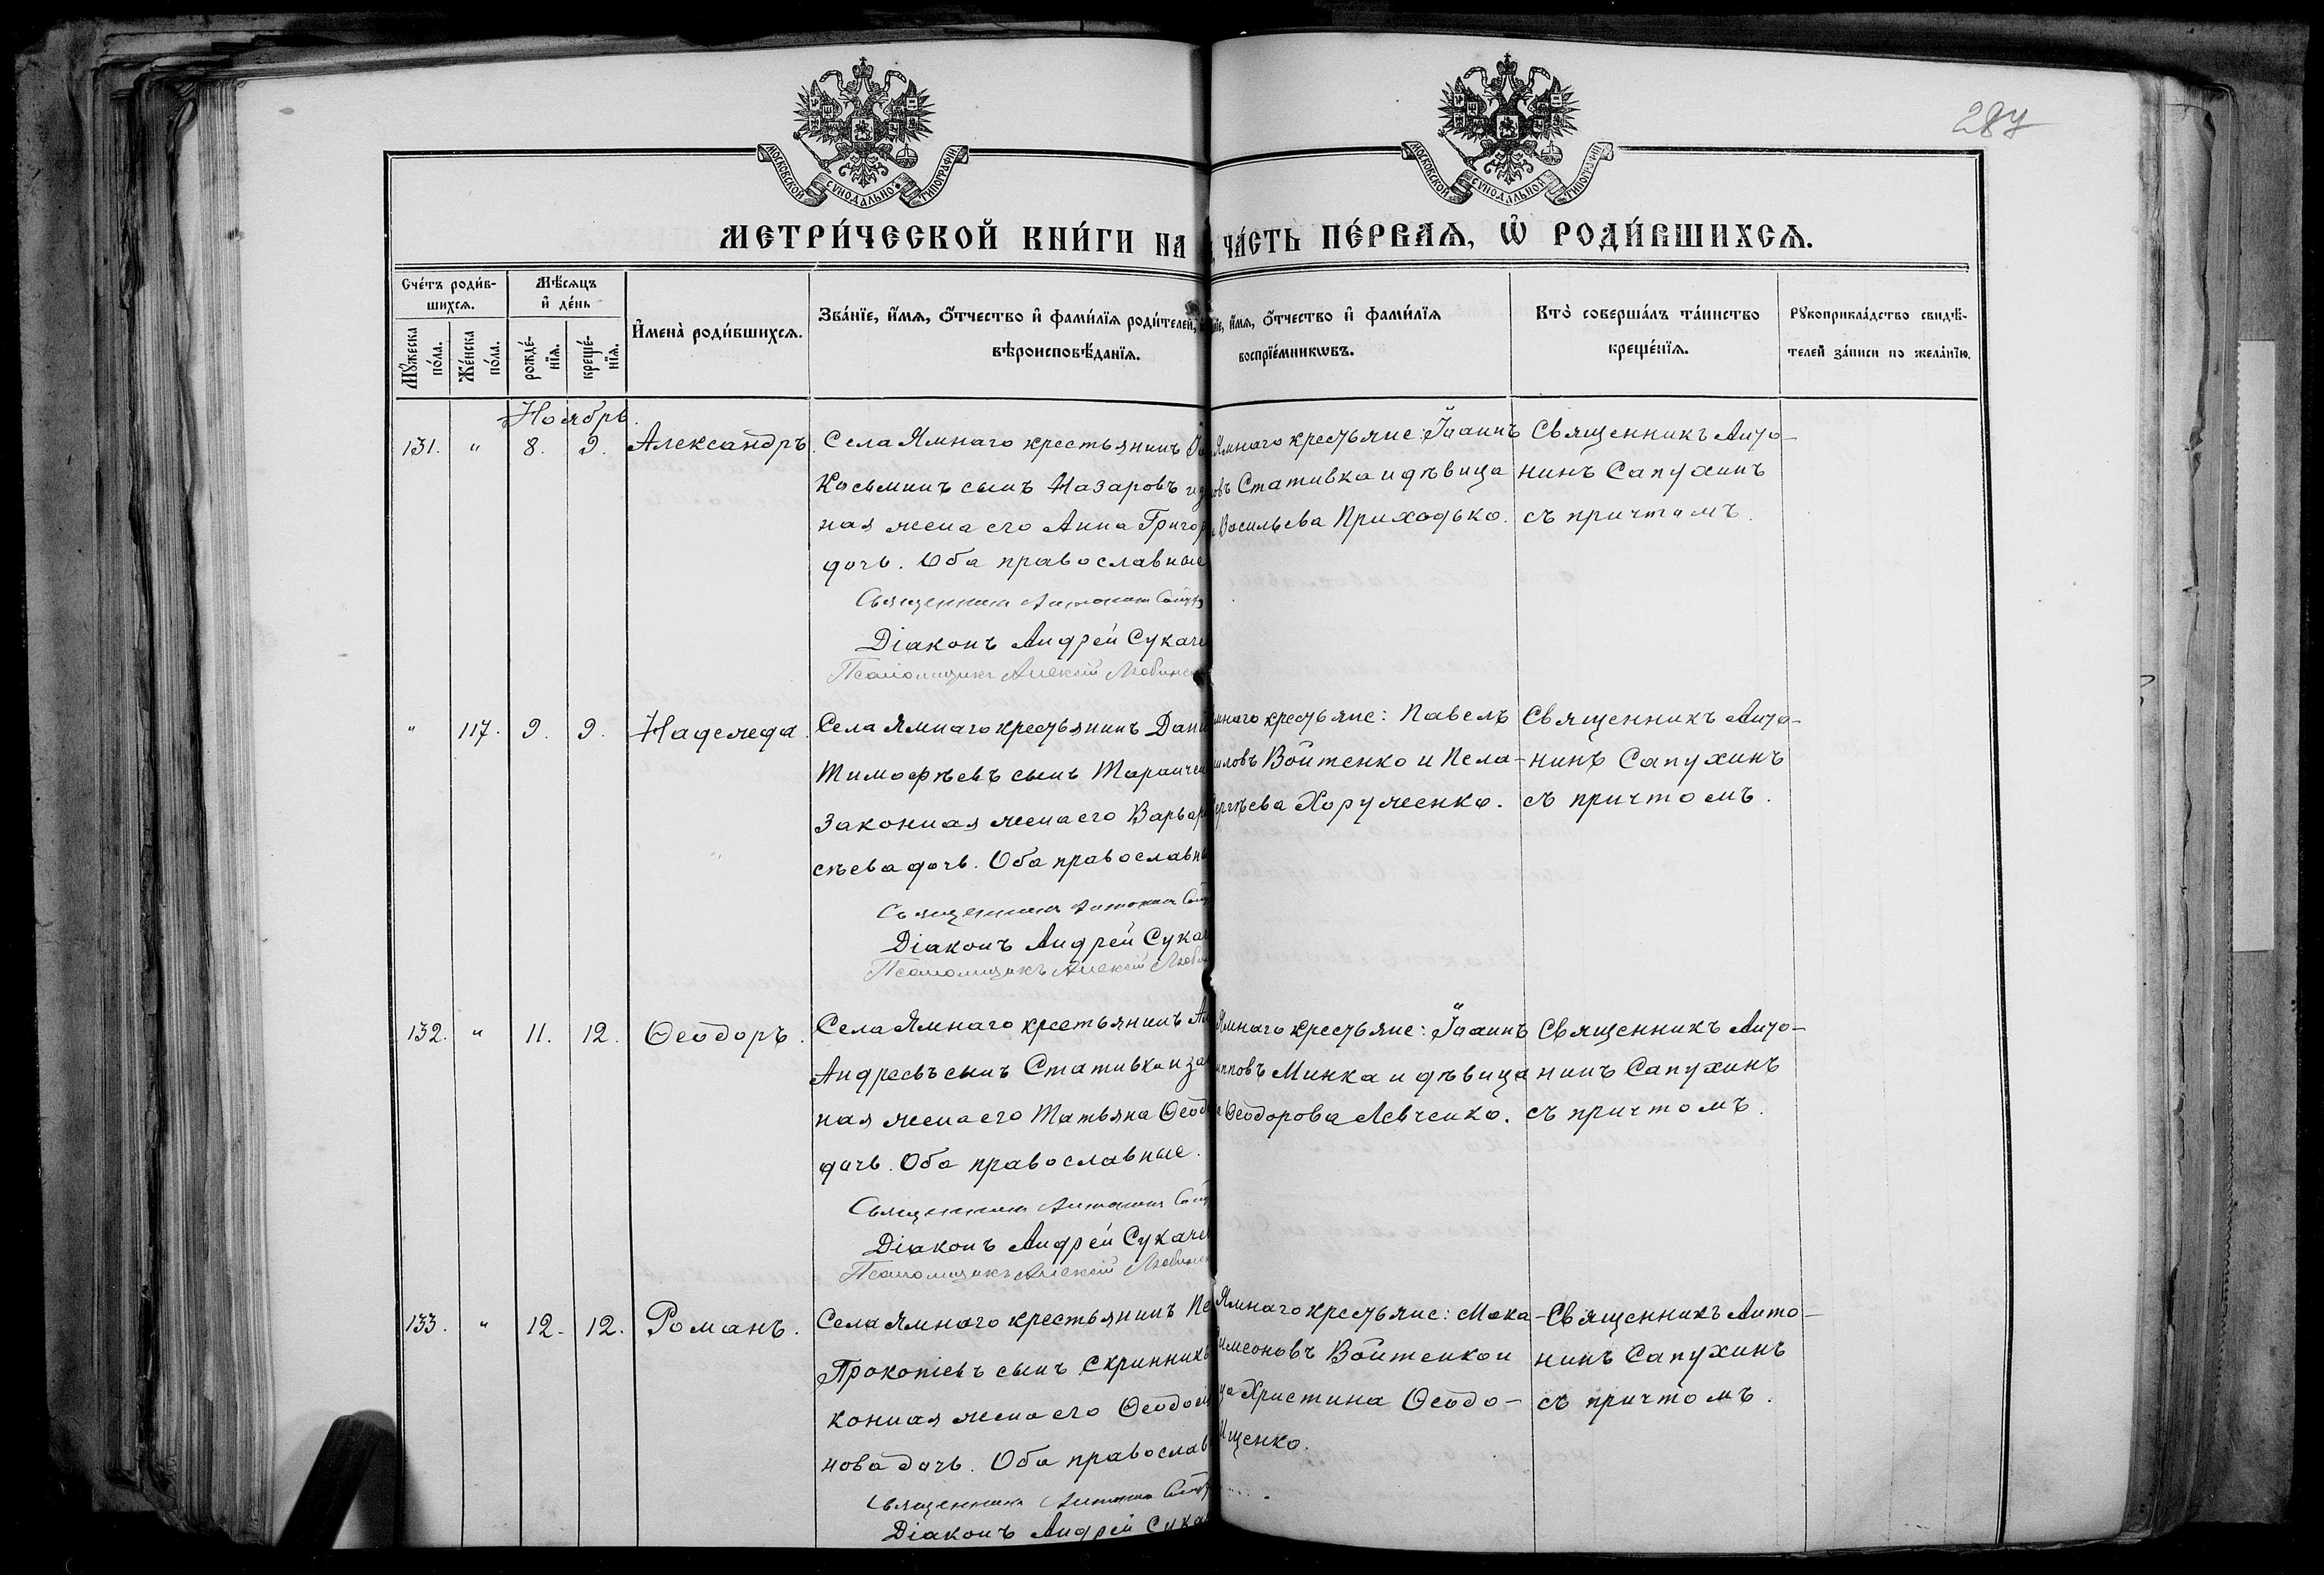 287
МОСКОВСКОЙ СѴНОДАЛЬНОЙ ТИПОГРАФІИ
МОСКОВСКОЙ СѴНОДАЛЬНОЙ ТИПОГРАФІИ
МЕТРИ́ЧЕСКОЙ КНИ́ГИ НА ЧА́СТЬ ПЕ́РВАѦ, Ѡ РОДИ́ВШИХСѦ.
Сче́тъ роди́в-
шихсѧ.
Мꙋ́жеска по́ла.
Же́нска по́ла.
Мѣ́сѧцъ
и҆ де́нь
рожде́-
нїѧ.
креще́-
нїѧ.
И҆мена̀ роди́вшихсѧ.
Зва́нїе, и҆́мѧ, ѻ҆́тчество и҆ фами́лїѧ роди́телей,
вѣроисповѣ́данїѧ.
и҆́мѧ, ѻ҆́тчество и҆ фами́лїѧ
воспрїе́мникѡвъ.
Кто̀ соверша́лъ та́инство
креще́нїѧ.
Рꙋкоприкла́дство свидѣ́-
телей за́писи по жела́нїю.
Ноябрь.
131. " 8. 9. Александръ.
Села Ямнаго крестьянинъ
Косьминъ сынъ Назаровъ и
ная жена его Анна Григор
дочь. Оба православные
Священникъ Антонинъ Сапух
Діаконъ Андрей Сукаче
Псаломщикъ Алексій Любинск
Ямнаго крестьяне: Іоаннъ
овъ Стативка и дѣвица
Васильева Приходько.
Священникъ Анто-
нинъ Сапухинъ
съ причтомъ.
" 117. 9. 9. Надежда.
Села Ямнаго крестьянинъ Дані
Тимофѣевъ сынъ Таранчен
законная жена его Варвар
сѣева дочь. Оба православн
Священникъ Антонинъ Сапу
Діаконъ Андрей Сука
Псаломщикъ Алексій Любин
мнаго крестьяне: Павелъ
иловъ Войтенко и Пела-
ергѣева Хоруженко.
Священникъ Анто-
нинъ Сапухинъ
съ причтомъ.
132. " 11. 12. Ѳеодоръ.
Села Ямнаго крестьянинъ
Андреевъ сынъ Стативка и за
ная жена его Татьяна Ѳеод
дочь. Оба православные.
Священникъ Антонинъ Сапу
Діаконъ Андрей Сукаче
Псаломщикъ Алексій Любинск
Ямнаго крестьяне: Іоаннъ
ипповъ Минка и дѣвица
Ѳеодорова Левченко.
Священникъ Анто-
нинъ Сапухинъ
съ причтомъ.
133. " 12. 12. Романъ.
Села Ямнаго крестьянинъ Пе
Прокопіевъ сынъ Скринник
конная жена его Ѳеодосі
нова дочь. Оба православ
Священникъ Антонинъ Сапу
Діаконъ Андрей Сука
Ямнаго крестьяне: Мака-
имеоновъ Войтенко и
ца Христина Ѳеодо-
Ищенко.
Священникъ Анто-
нинъ Сапухинъ
съ причтомъ.